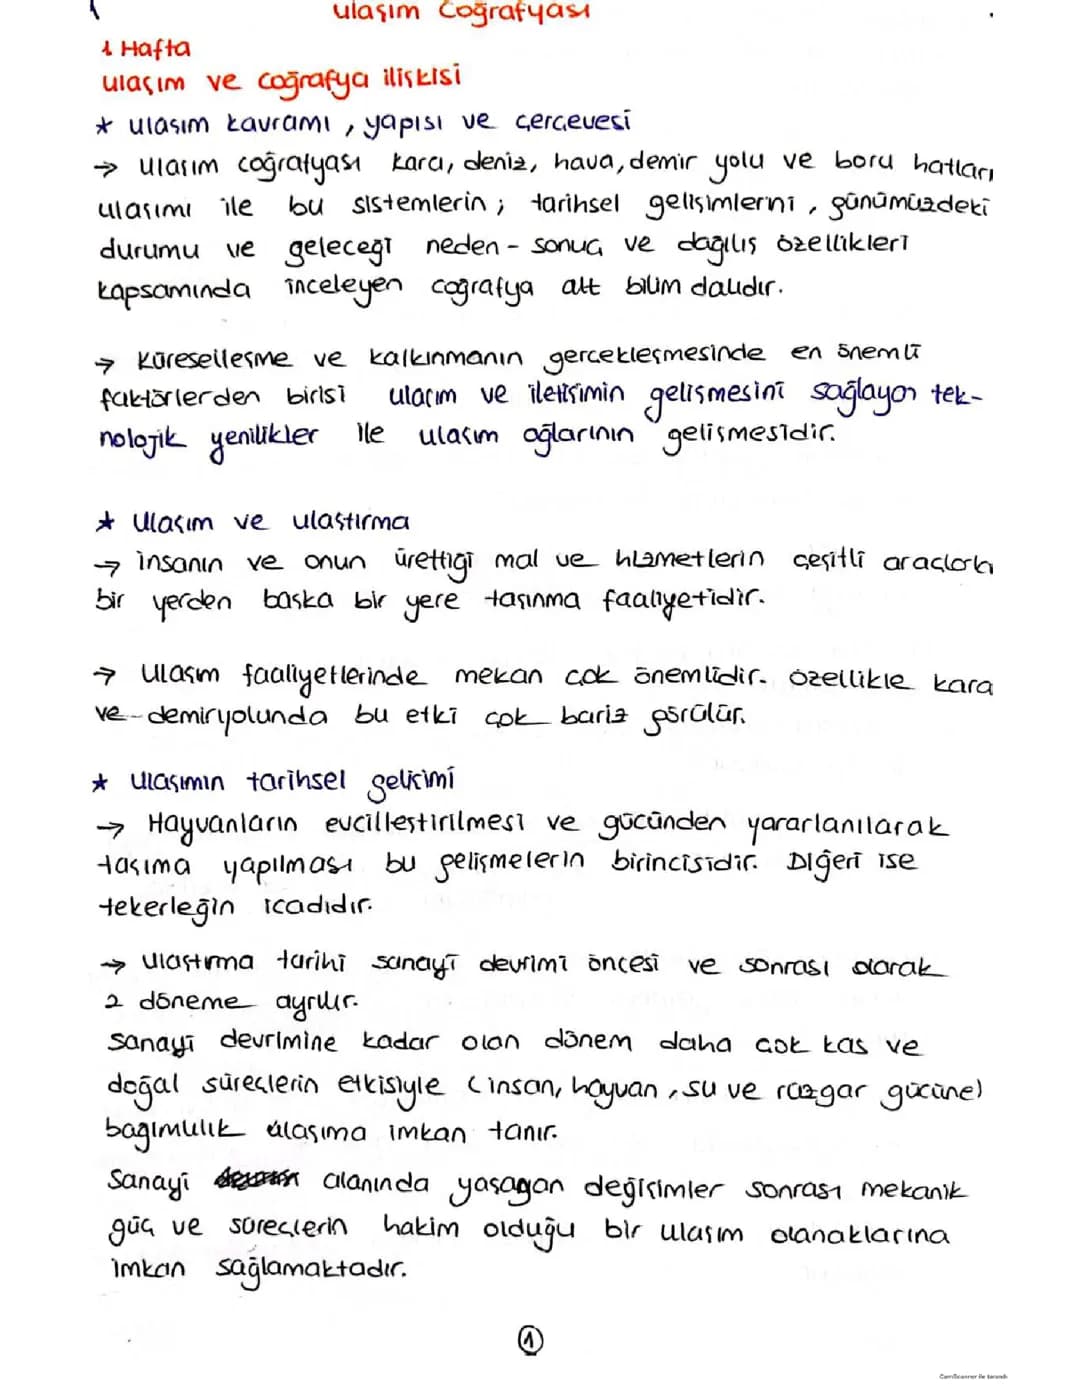 ulaşım Coğrafyası
1 Hafta
ulaşım ve coğrafya ilişkisi
* ulaşım kavramı, yapısı ve çerçevesi
→ ulaşım coğrafyası kara, deniz, hava, demir yolu ve boru hatları
ulaşımı ile bu sistemlerin; tarihsel gelişimlerni, günümüzdeki
durumu ve geleceği neden - sonuç ve dağılış özellikleri
kapsamında inceleyen coğrafya alt bilim dalıdır.
→ Küreselleşme ve kalkınmanın gerçekleşmesinde en önemli
faktörlerden birisi ulaşım ve iletişimin gelişmesini sağlayan tek-
nolojik yenilikler ile ulaşım ağlarının gelişmesidir.
* Ulaşım ve ulaştırma
→ insanın ve onun ürettiği mal ve hizmetlerin çeşitli araçlarla
bir yerden başka bir yere taşınma faaliyetidir.
→ Ulaşım faaliyetlerinde mekan çok önemlidir. özellikle kara
ve demiryolunda bu etki çok bariz görülür.
* ulaşımın tarihsel gelişimi
→ Hayvanların evcilleştirilmesi ve gücünden yararlanılarak
taşıma yapılması bu gelişmelerin birincisidir. Diğeri ise
tekerleğin icadıdır.
→ Ulaştırma tarihi sanayi devrimi öncesi ve sonrası olarak
2 döneme ayrılır.
Sanayi devrimine kadar olan dönem daha çok kas ve
doğal süreçlerin etkisiyle (insan, hayvan, su ve rüzgar gücüne)
bağımlılık ulaşıma imkan tanır.
Sanayi alanında yaşagan değişimler sonrası mekanik
güç ve süreçlerin hakim olduğu bir ulaşım olanaklarına
imkan sağlamaktadır.
1
CamScanner ile tarandı